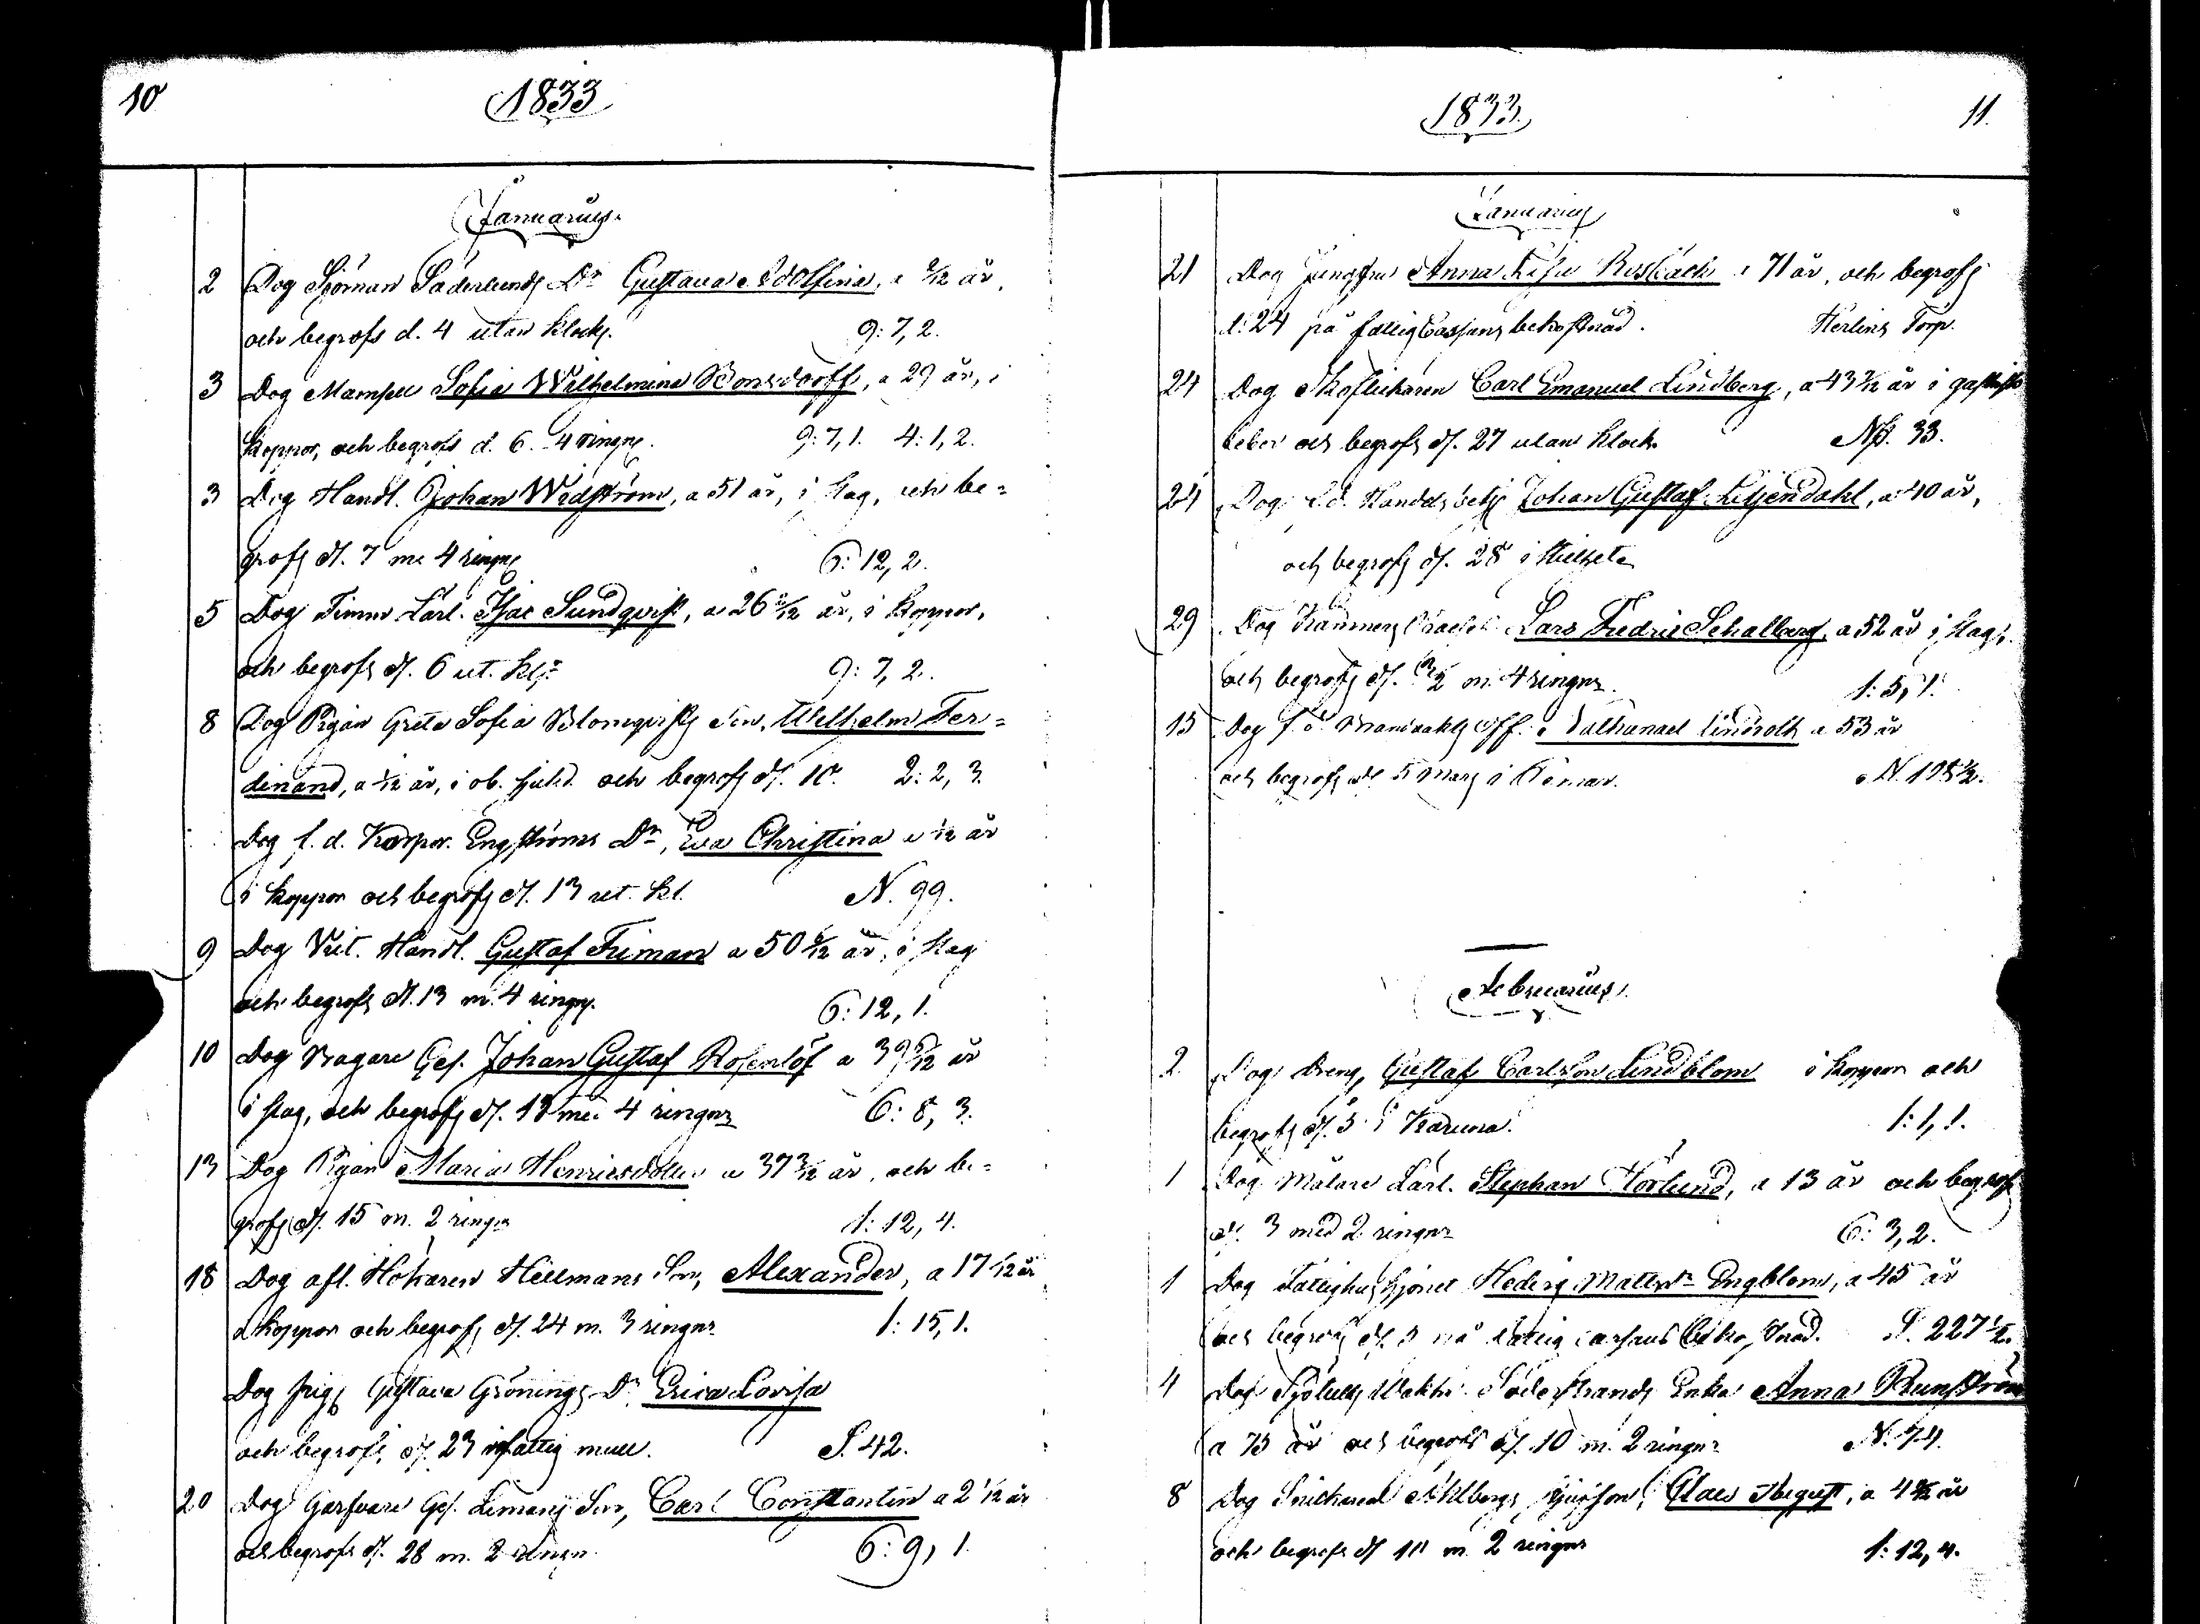 10
1833
Januarius.
2 Dog Sjöman Söderlunds Dr Gustava Adolfina, a 9/12 år,
och begrofs d. 4 utan klock. 9: 7, 2.
3 Dog Mamsell Sofia Wilhelmina Bonsdorff, a 29 år, i
koppor, och begrofs d. 6. 4 ringng. 9: 7, 1. 4: 1, 2.
3 Dog Handl. Johan Widström, a 51 år, i slag, och be=
grofs d. 7 me 4 ringng 6: 12, 2.
5 Dog Timm Lärl. Isac Sundqvist, a 26 år, i koppor,
och begrofs d. 6 ut. kl. 9: 7, 2.
8 Dog Pigan Greta Sofia Blomqvists Son, Wilhelm Fer=
dinand, a 1/12 år, i ob. sjukd. och begrofs d. 10. 2: 2, 3.
Dog f. d. Korpor. Engströms Dr, Eva Christina a 1/12 år
i koppor och begrofs d. 13 ut. kl. N. 99.
9 Dog Vict. Handl. Gustaf Friman a 50 år, i slag
och begrofs d. 13 m. 4 ringng. 6: 12, 1.
10 Dog Bagare Ges. Johan Gustaf Rosenlöf a 39 år
i slag, och begrofs d. 13 me 4 ringnr 6: 8, 3.
13 Dog Pigan Maria Henricsdotter a 37 3/12 år, och be=
grofs d. 15 m. 2 ringnr 1: 12, 4.
18 Dog afl. Hökaren Hellmans Son, Alexander, a 17 1/12 år
koppor och begrofs d. 24 m. 3 ringnr 1: 15, 1.
Dog pig Gustava Grönings Dr Erica Lovisa
och begrofs d. 23 i fattig mull. S. 42.
20 Dog Garfvare Ges. Limans Son, Carl Constantin a 2 1/12 år
och begrofs d. 28 m. 2 ringn. 6: 9, 1.
1833.
11.
Januarius
21 Dog Jungfru Anna Lisa Rosback a 71 år, och begrofs
d. 24 på fattig Cassans bekostnad. Herlins Torp.
24 Dog Skoflickaren Carl Emanuel Lindberg, a 43 år i
feber och begrofs d. 27 utan klock. 33.
24 Dog f. d. Handelsbetj Johan Gustaf Liljendahl, a 40 år,
och begrofs d. 28 i stillhet
29 Dog Lars Fredric Schalberg, a 52 år i slag,
och begrofs d. m. 4 ringnr. 1: 5, 1.
15 Dog f. d. Brandvakts off. Nathanael Lindroth a 53 år
och begrofs d. 5 Mars N. 108 1/2.
Februarius.
2 Dog Dreng, Gustaf Carlsson Lindblom i koppor och
begrofs d. 3 i Karuna. 1: 1, 1.
1 Dog Målare Lärl. Stephan Hörlund, a 13 år och begrof
d. 3 med 2 ringnr 6: 3, 2.
1 Dog Fattighus hjonet Hedvig Mattsdr Engblom, a 45 år
och begrofs d. 3 på fattig cassans bekostnad. S. 227 1/2.
4 Dog Sjötulls Waktm. Söderstrands Enka Anna Renström
a 75 år och begrofs d. 10 m. 2 ringnr N. 74.
8 Dog Snickaren Ahlbergs Styfson, Claes August, a 4 år
och begrofs d 10 m. 2 ringnr 1: 12, 4.